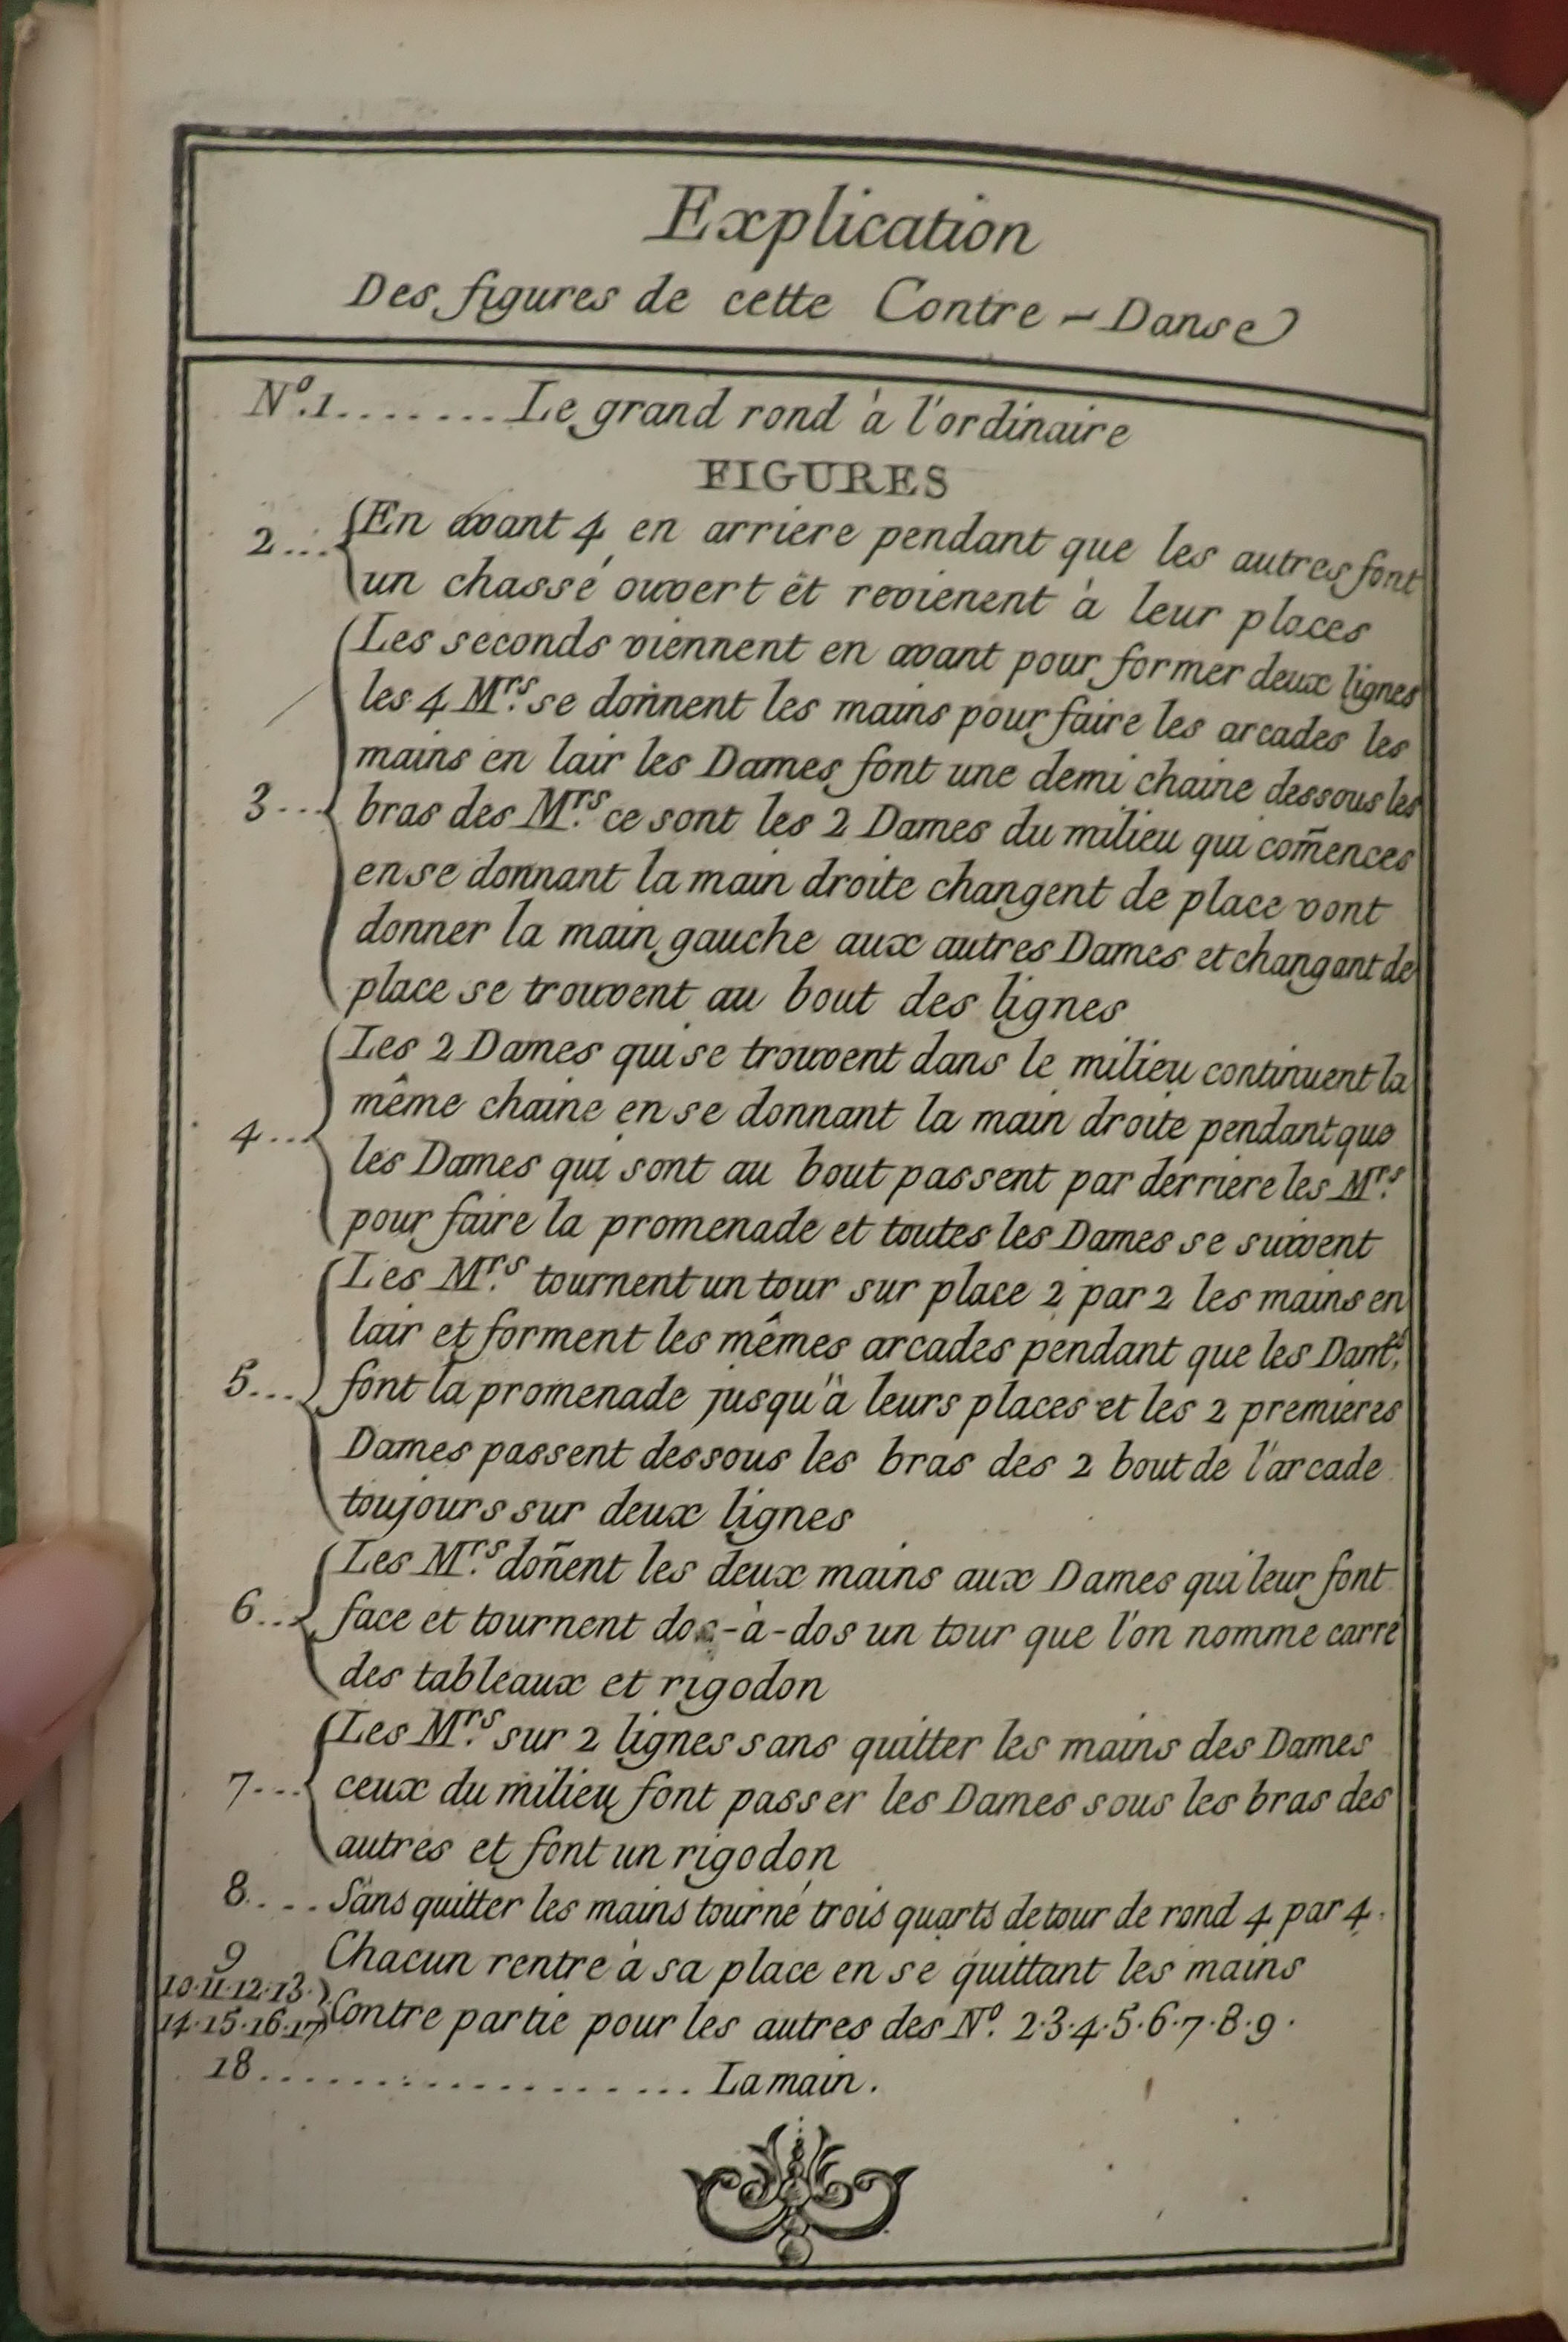 Explication
Des figures de cette Contre-Danse
N.º 1........Le grand rond à l'ordinaire
FIGURES
2... En avant 4 en arriere pendant que les autres font
un chassé ouvert et revienent à leur places
Les seconds viennent en avant pour former deux lignes
les 4 M.rs se donnent les mains pour faire les arcades les
mains en lair les Dames font une demi chaine dessous les
3... bras des M.rs ce sont les 2 Dames du milieu qui com̃ences
en se donnant la main droite changent de place vont
donner la main gauche aux autres Dames et changant de
place se trouvent au bout des lignes
Les 2 Dames qui se trouvent dans le milieu continuent la
même chaine en se donnant la main droite pendant que
4... les Dames qui sont au bout passent par derriere les M.rs
pour faire la promenade et toutes les Dames se suivent
Les M.rs tournent un tour sur place 2 par 2 les mains en
lair et forment les mêmes arcades pendant que les
5... font la promenade jusqu'à leurs places et les 2 premieres
Dames passent dessous les bras des 2 bout de l'arcade
toujours sur deux lignes
Les M.rs doñent les deux mains aux Dames qui leur font
6... face et tournent dos-à-dos un tour que l'on nomme carré
des tableaux et rigodon
Les M.rs sur 2 lignes sans quitter les mains des Dames
7... ceux du milieu font passer les Dames sous les bras des
autres et font un rigodon
8.... Sans quitter les mains tourné trois quarts de tour de rond 4 par 4.
9 Chacun rentre à sa place en se quittant les mains
10.11.12.13.
14.15.16.17 Contre partie pour les autres des N.º 2.3.4.5.6.7.8.9.
18.................... La main.